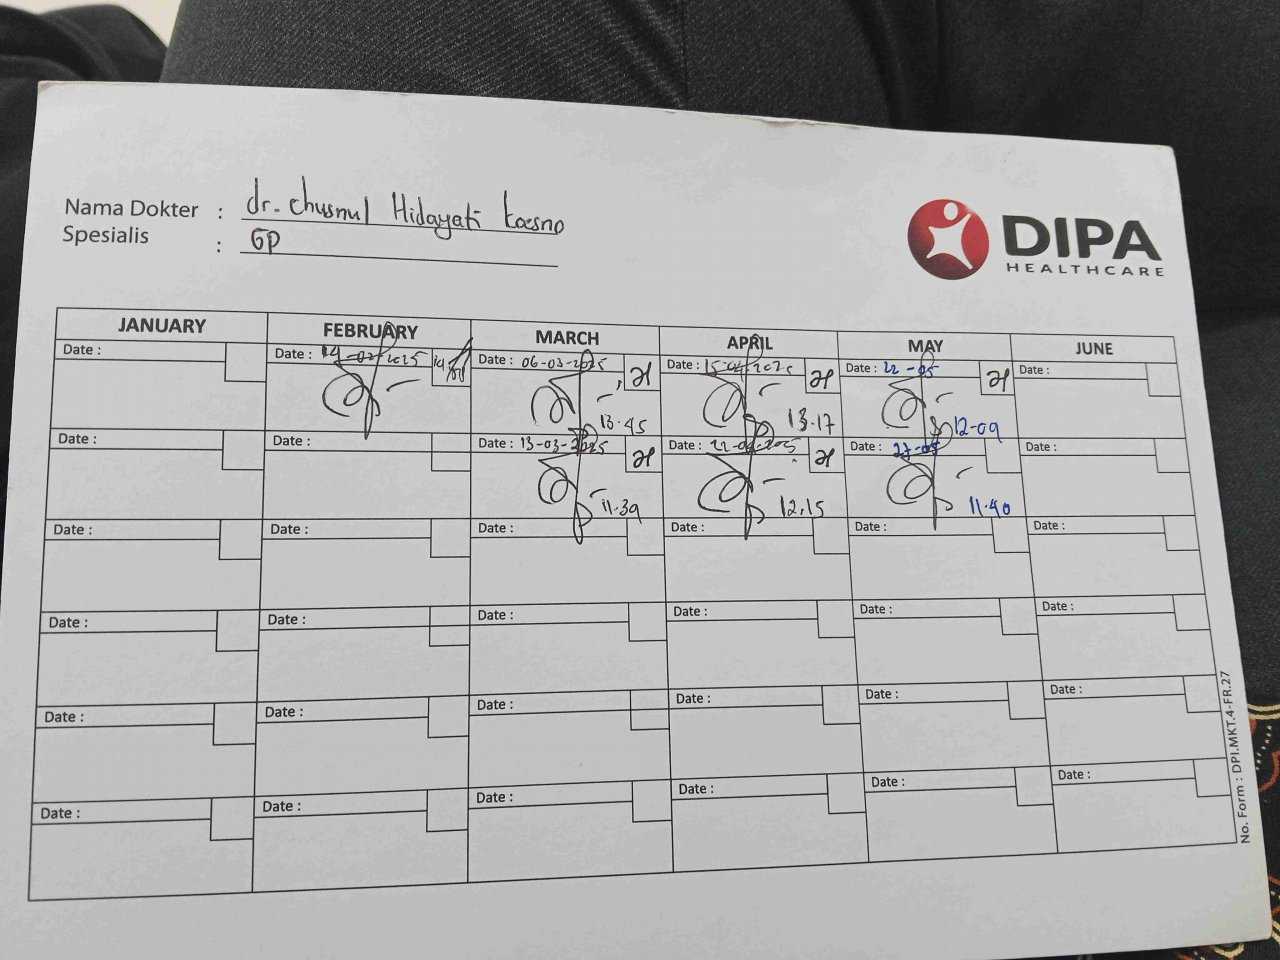 Nama Dokter : dr. Chusnul Hidayati Koesno
Spesialis : GP
DIPA
HEALTHCARE
JANUARY FEBRUARY MARCH APRIL MAY JUNE
Date : Date : 19-02-2025 Date : 06-03-2025 Date : 15-04-2025 Date : 22-05 Date :
13.45 13.17 12.09
Date : Date : Date : 13-03-2025 Date : 22-04-2025 Date : 27-05 Date :
11.39 12.15 11.40
Date : Date : Date : Date : Date : Date :
Date : Date : Date : Date : Date : Date :
Date : Date : Date : Date : Date : Date :
Date : Date : Date : Date : Date : Date :
No. Form : DPI.MKT.4-FR.27